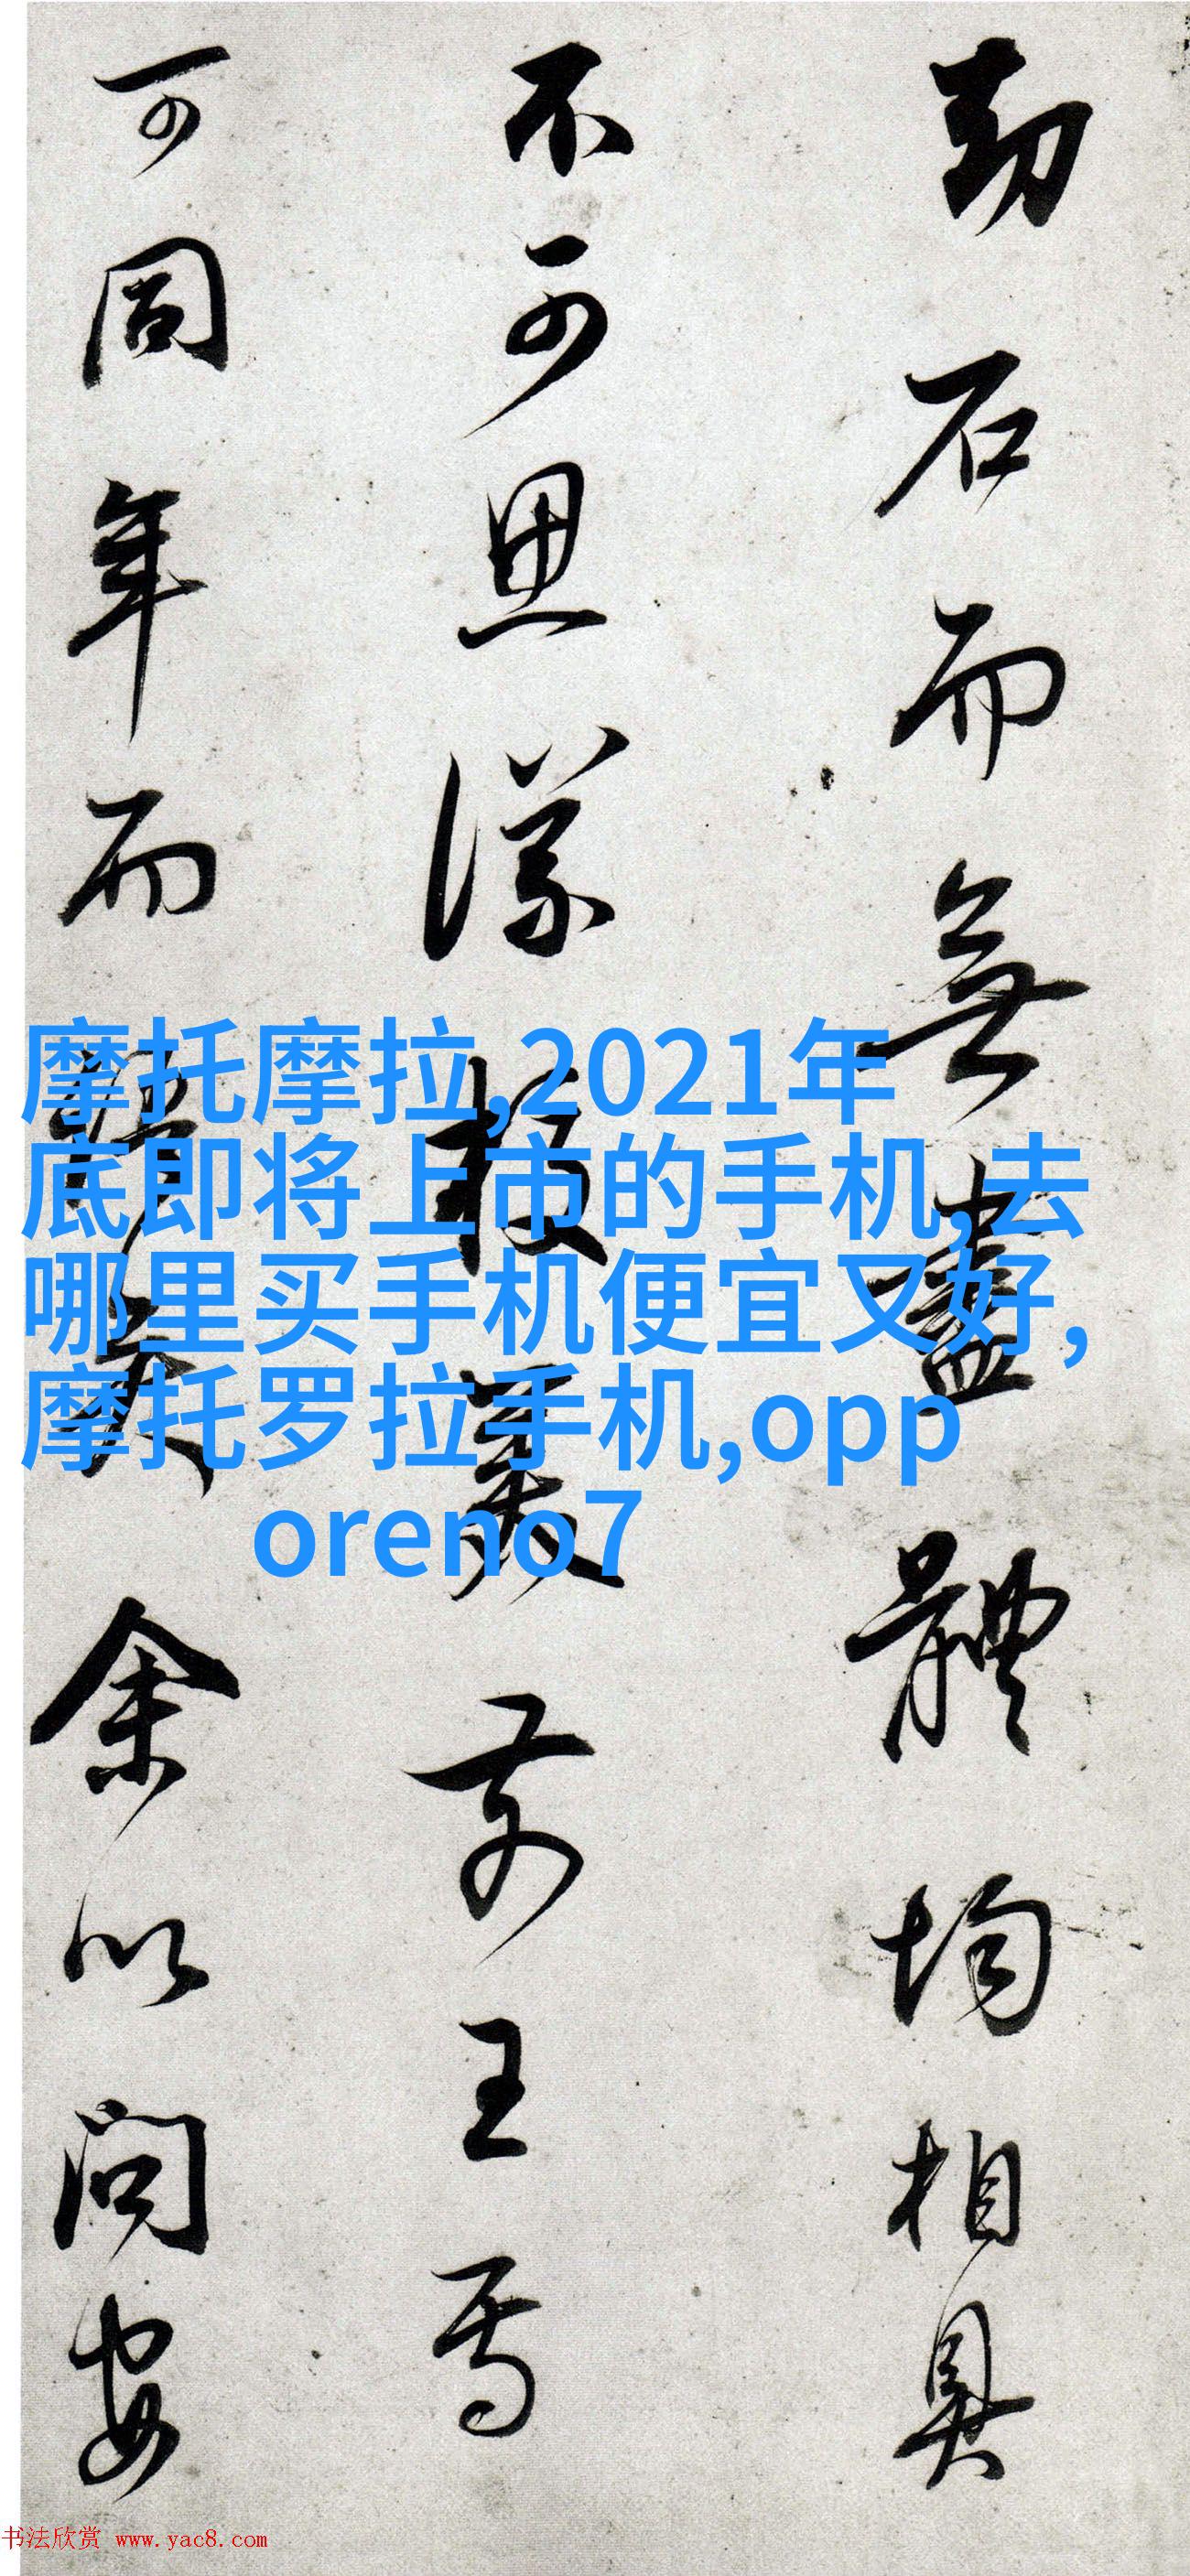 劫石而無盡體均相具
不可思議校美前王焉
可同年而語矣余以問安
摩托摩拉,2021年
底即将上市的手机,去
哪里买手机便宜又好,
摩托罗拉手机,opp
oreno7
书法欣赏 www.yac8.com